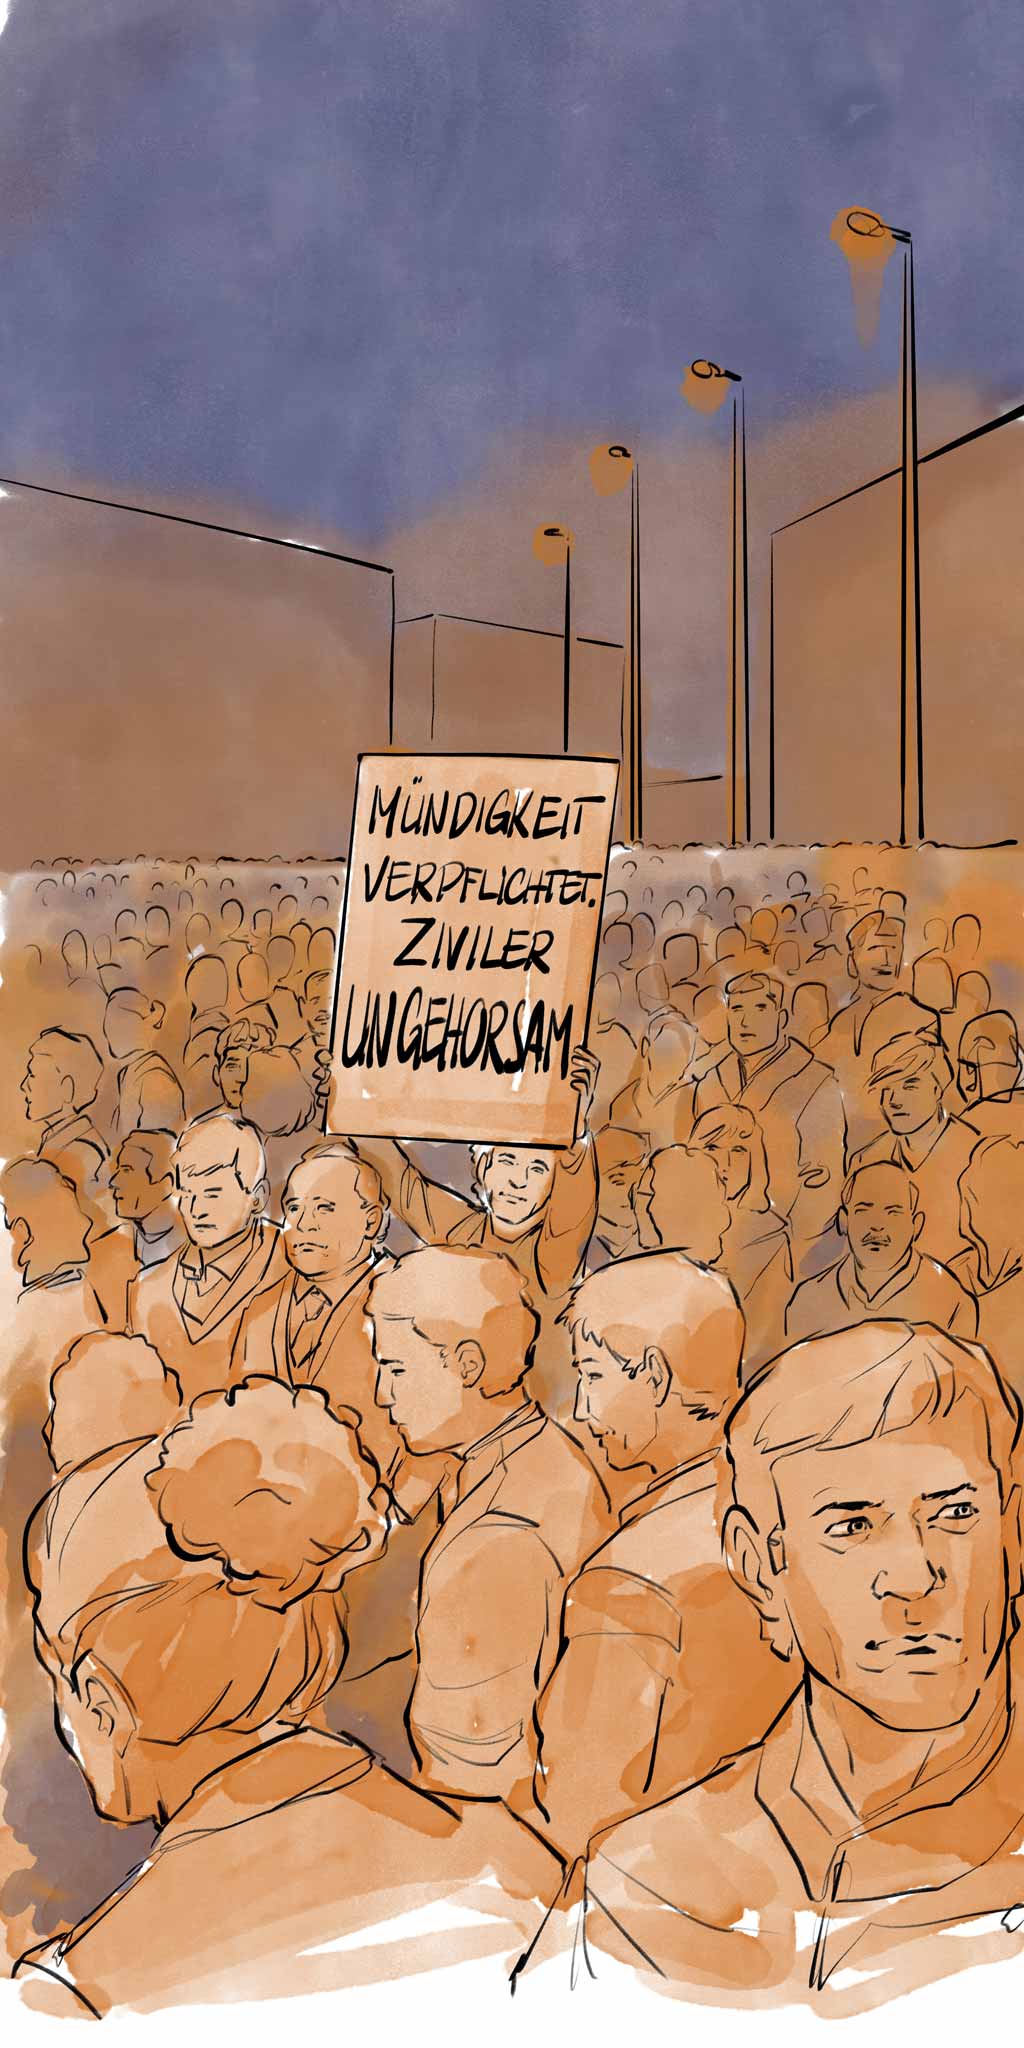 MÜNDIGKEIT
VERPFLICHTET.
ZIVILER
UNGEHORSAM